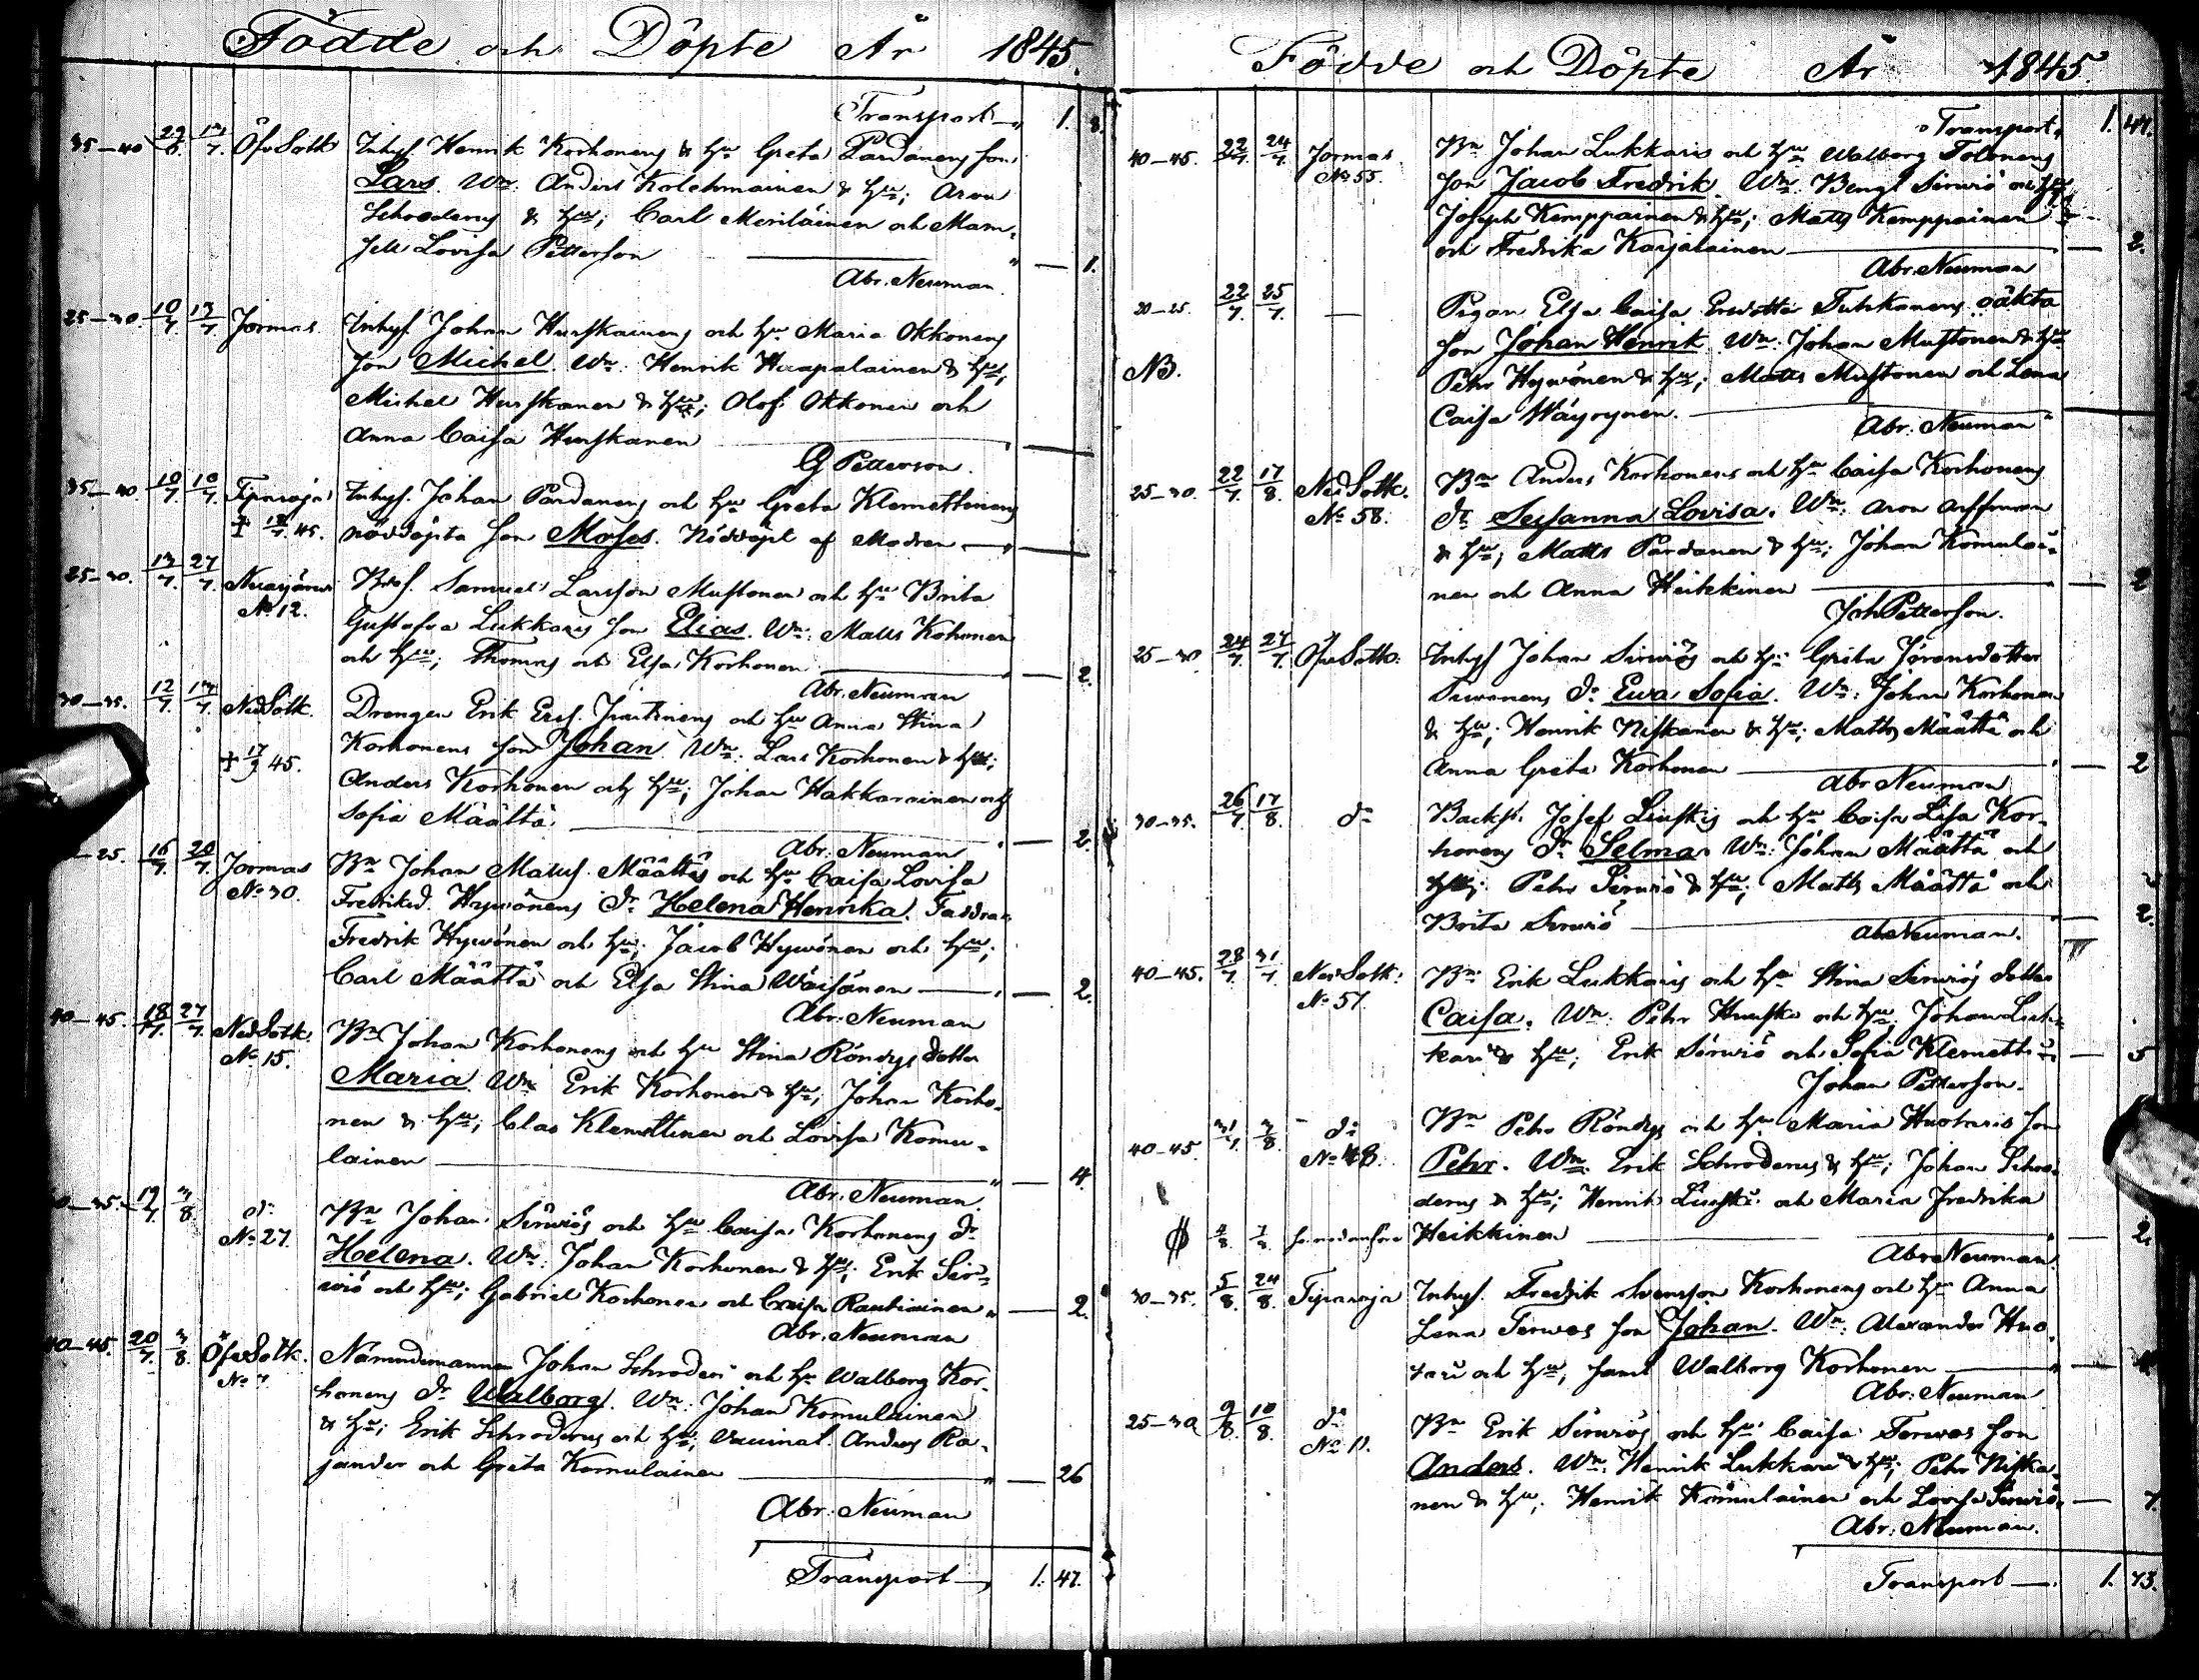 Födde och Döpte År 1845.
Transport 1. 8.
35–40 29/6. 13/7. Öfv Sotk Inhys. Henrik Korhonens & hu Greta Pardanens son
Lars. Wn. Anders Kolehmainen & hu; Aron
Schroderus & hu; Carl Meriläinen och Mam-
sell Lovisa Petterson — 1.
Abr. Neuman.
25–30. 10/7. 13/7. Jormas. Inhys. Johan Hurskainens och hu Maria Okkonens
son Michel. Wn. Henrik Haapalainen & hu;
Michel Hurskanen & hu; Olof Okkonen och
Anna Caisa Hurskanen —
Petterson.
35–40. 10/7. 10/7. Tipasoja Inhys. Johan Pardanens och hu Greta Klemettinens
† 45. nöddöpta son Moses. Nöddöpt af Modren —
25–30. 13/7. 27/7. Nuasjärvi Samuel Larsson Mustonen och hu Brita
No 12. Gustafva Lukkaris son Elias. Wn. Matts Kohonen
och hu; Thomas och Elsa Korhonen — 2.
Abr. Neuman
30–35. 12/7. 13/7. Ned Sotk. Drengen Erik Ers. Juntunens och hu Anna Stina
† 17/9 45. Korhonens son Johan. Wn. Lars Korhonen & hu;
Anders Korhonen och hu; Johan Hakkarainen och
Sofia Määttä. — 2.
Abr. Neuman
25. 16/7. 20/7. Jormas Bn Johan Matts. Määttäs och hu Caisa Lovisa
No 30. Fredriksd. Hyvönens Dr Helena Henrika. Faddrar
Fredrik Hyvönen och hu; Jacob Hyvönen och hu;
Carl Määttä och Elsa Stina Väisänen — 2.
Abr. Neuman
40–45. 18/7. 27/7. Ned Sotk. Bn Johan Korhonens och hu Stina Röndys dotter
No 15. Maria. Wn Erik Korhonen & hu; Johan Korho-
nen & hu; Clas Klemettinen och Lovisa Komu-
lainen — 4.
Abr. Neuman.
35. 19/7. 3/8. do Bn Johan Sirviös och hu Caisa Korhonens Dr
No 27. Helena. Wn. Johan Korhonen & hu; Erik Sir-
viö och hu; Gabriel Korhonen och Caisa Rautiainen — 2.
Abr. Neuman
40–45. 20/7. 3/8. Öfv Sotk. Nämndemannen Johan Schroderi och hu Walborg Kor-
No 7. honens Dr Walborg. Wn. Johan Komulainen
& hu; Erik Schroderus och hu; Vaccinat. Anders Ra-
jander och Greta Komulainen — 26
Abr. Neuman
Transport — 1. 47.
Födde och Döpte År 1845.
Transport 1. 47.
40–45. 22/7. 24/7. Jormas. Bn Johan Lukkaris och hu Walborg Tolonens
No 55. son Jacob Fredrik. Wn. Bengt Sirviö och hu;
Joseph Kemppainen & hu; Matts Kemppainen
och Fredrika Karjalainen — 2.
Abr. Neuman
20–25. 22/7. 25/7. — Pigan Elsa Caisa Ersdotter Tuhkanens oäkta
son Johan Henrik. Wn. Johan Mustonen & hu
NB. Pehr Hyvönen & hu; Matts Mustonen och Lena
Caisa Wäyrynen. —
Abr. Neuman
25–30. 22/7. 17/8. Ned Sotk. Bn Anders Korhonens och hu Caisa Korhonens
No 58. Dr Susanna Lovisa. Wn. Aron Arffman
& hu; Matts Pardanen & hu; Johan Komulai-
nen och Anna Heikkinen — 2
Joh Petterson.
25–30 24/7. 27/7. Öfv Sotk. Inhys Johan Sirviös och hu Greta Göransdotter
Dr Ewa Sofia. Wn. Johan Korhonen
& hu; Henrik Niskanen & hu; Matts Määttä och
Anna Greta Korhonen — 2
Abr Neuman
30–35. 26/7. 17/8. do Backst. Josef Liuskis och hu Caisa Lisa Kor-
honens Dr Selma. Wn. Johan Määttä och
hu; Pehr Sirviö & hu; Matts Määttä och
Brita Sirviö — 2.
Abr Neuman.
40–45. 28/7. 31/7. Ned Sotk. Bn Erik Lukkaris och hu Stina Sirviös dotter
No 51. Caisa. Wn. Pehr Hurska och hu; Johan Luk-
kari & hu; Erik Sirviö och Sofia Klemetti — 5
Johan Petterson.
40–45 31/7. 3/8. do Bn Pehr Röndys och hu Maria Huotaris son
No 48. Pehr. Wn. Erik Schroderus & hu; Johan Schro-
derus & hu; Henrik Liuski och Maria Fredrika
Heikkinen — 2.
Abr Neuman.
30–35. 5/8. 24/8. Tipasoja Inhys. Fredrik Svensson Korhonens och hu Anna
Lena Terwos son Johan. Wn. Alexander Huo-
tari och hu; samt Walborg Korhonen —
Abr. Neuman
25–30 9/8. 10/8. do Bn Erik Sirviös och hu Caisa Terwos son
No 11. Anders. Wn. Henrik Lukkari & hu; Pehr Niska-
nen & hu; Henrik Komulainen och Lovisa Sirviö — 7.
Abr. Neuman.
Transport — 1. 73.